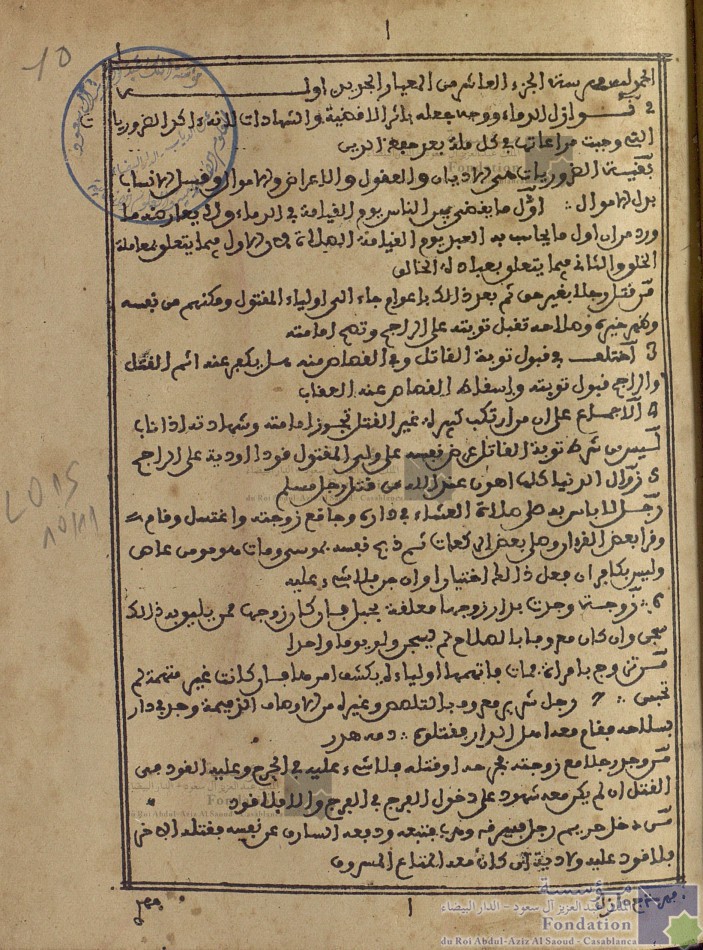 1
10
الحمد لله فهرسة الجزء العاشر من المعيار الجديد اوله
2 نوازل الدماء ووجه جعله باثر الاقضية والشهادات لانه اكد الضروريات
التي وجبت مراعاتها في كل ملة بعد حفظ الدين
بقية الضروريات هي الاديان والعقول والاعراض والاموال وقيل الانساب
بدل الاموال ∴ اول ما يقضى بين الناس يوم القيامة في الدماء ولا يعارضه ما
ورد من ان اول ما يحاسب به العبد يوم القيامة الصلاة لان الاول فيما يتعلق بمعاملة
الخلق والثاني فيما يتعلق بعبادة الخالق
من قتل رجلا بغير حق ثم بعد ذلك باعوام جاء الى اولياء المقتول ومكنهم من نفسه
وظهر خيره وصلاحه تقبل توبته على الراجح وتصح امامته
3 اختلف في قبول توبة القاتل وفي القصاص منه هل يكفر عنه اثم القتل
والراجح قبول توبته واسقاط القصاص عنه العقاب
4 الاجماع على ان من ارتكب كبيرة غير القتل تجوز امامته وشهادته اذا تاب
ليس من شرط توبة القاتل عرض نفسه على ولي المقتول قودا او دية على الراجح
5 زوال الدنيا كلها اهون عند الله من قتل رجل مسلم
رجل لا باس به صلى صلاة العشاء في داره وجامع زوجته واغتسل وقام
وقرا بعض القرءان وصلى بعض الركعات ثم ذبح نفسه بموسى ومات فهو مومن عاص
وليس بكافر ان فعل ذلك اختيارا وان جن فلا شيء عليه
6 ∴ زوجة وجدت بدار زوجها معلقة بحبل فان كان زوجها ممن يليق به ذلك
سجن وان كان معروفا بالصلاح لم يسجن ولو يوما واحدا
من تزوج بامراة فمات فاتهمها اولياؤه يكشف امرها فان كانت غير متهمة لم
تحبس ∴ 7 رجل شهير معروف بالتلصص وغيره من الاوصاف الذميمة وجد في دار
بسلاحه فقام معه اهل الدار فقتلوه ∴ دمه هدر
من وجد رجلا مع زوجته فجرحه او قتله فلا شيء عليه في الجرح وعليه القود في
القتل ان لم يكن معه شهود على دخول الفرج في الفرج والا فلا قود
من دخل حريم رجل فسرقه وهرب فتبعه ودفعه السارق عن نفسه فقتله الاخر
فلا قود عليه ولا دية ان كان معه المتاع المسروق
1
مؤسسة
الملك عبد العزيز آل سعود - الدار البيضاء
Fondation
du Roi Abdul-Aziz Al Saoud - Casablanca